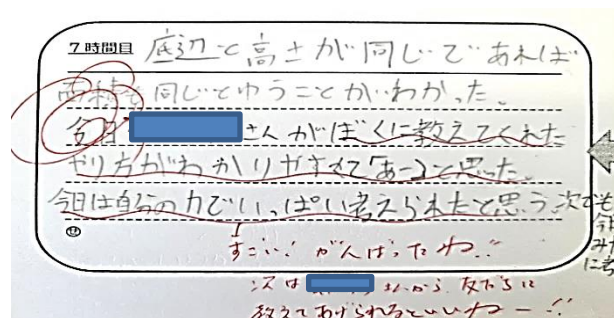 7時間目 底辺と高さが同じであれば
面積も同じとゆうことがわかった。
今日 さんがぼくに教えてくれた
やり方がわかりやすくて「あー」と思った。
今日は自分の力でいっぱい考えられたと思う。次
すごい!がんばったね!!
次は から 友だちに
教えてあげられるといいねー!!